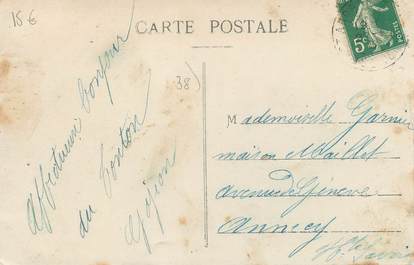 15€
CARTE POSTALE
5c
38)
Affectueux bonjour
du Fonton
Mademoiselle Garnier
maison Maillet
avenue de Genève
Annecy
Hte Savoie